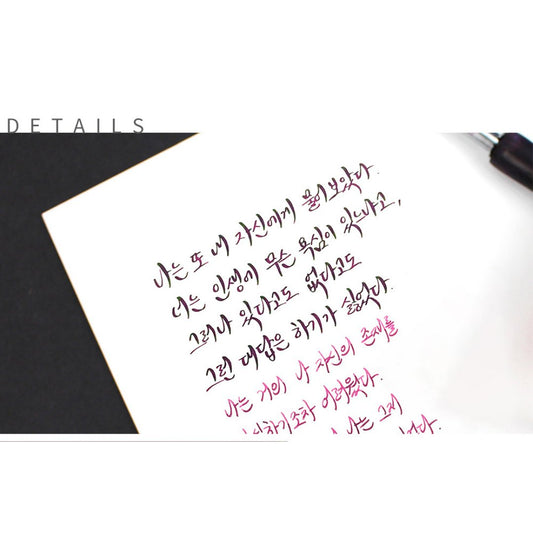 DETAILS
나는 또 내 자신에게 물어보았다.
너는 인생에 무슨 욕심이 있느냐고,
그러나 있다고도 없다고도
그런 대답은 하기가 싫었다.
나는 거의 나 자신의 존재를
하기조차 어려웠다.
나는 그저